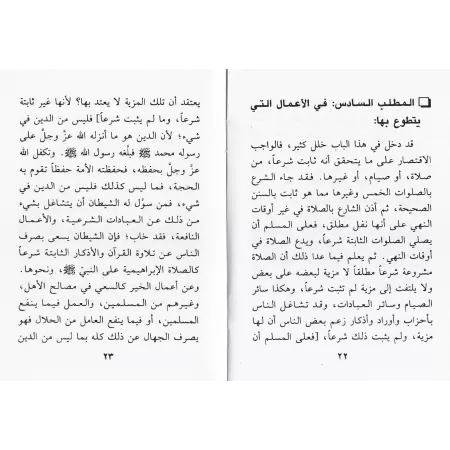 ❏ المطلب السادس: في الأعمال التي
يتطوع بها:
قد دخل في هذا الباب خلل كثير، فالواجب
الاقتصار على ما يتحقق أنه ثابت شرعاً، من
صلاة، أو صيام، أو غيرهما. فقد جاء الشرع
بالصلوات الخمس وغيرها مما هو ثابت بالسنن
الصحيحة، ثم أذن الشارع بالصلاة في غير أوقات
النهي على أنها نفل مطلق، فعلى المسلم أن
يصلي الصلوات الثابتة شرعاً، ويدع الصلاة في
أوقات النهي. ثم يعلم فيما عدا ذلك أن الصلاة
مشروعة شرعاً مطلقاً لا مزية لبعضه على بعض
ولا يلتفت إلى مزية لم تثبت شرعاً، وهكذا سائر
الصيام وسائر العبادات، وقد تشاغل الناس
بأحزاب وأوراد وأذكار زعم بعض الناس أن لها
مزية، ولم يثبت ذلك شرعاً، [فعلى المسلم أن
٢٢
يعتقد أن تلك المزية لا يعتد بها؟ لأنها غير ثابتة
شرعاً] (وما لم يثبت شرعاً) فليس من الدين في
شيء؛ لأن الدين هو ما أنزله الله عزّ وجلّ على
رسوله محمد ﷺ فبلّغه رسول الله ﷺ. وتكفل الله
عزّ وجلّ بحفظه، فحفظته الأمة حفظاً تقوم به
الحجة، فما ليس كذلك فليس من الدين في
شيء، فمن سوّل له الشيطان أن يتشاغل بشيء
من ذلك عن العبادات الشرعية، والأعمال
النافعة، فقد خاب؛ فإن الشيطان يسعى بصرف
الناس عن تلاوة القرآن والأذكار الثابتة شرعاً
كالصلاة الإبراهيمية على النبيّ ﷺ، ونحوها.
وعن أعمال الخير كالسعي في مصالح الأهل،
وغيرهم من المسلمين، والعمل فيما ينفع
المسلمين، أو فيما ينفع العامل من الحلال فهو
يصرف الجهال عن ذلك كله بما ليس من الدين
٢٣